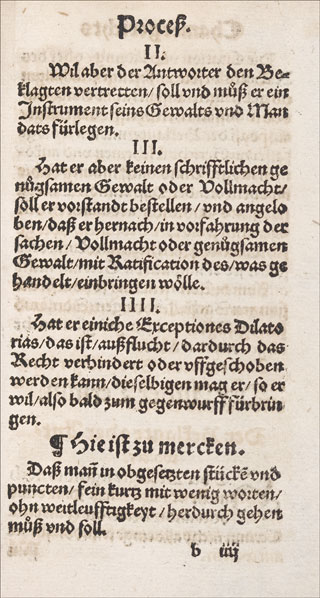 Proceß.
II.
Wil aber der Antworter den Be⸗
klagten vertretten/ soll vnd müß er ein
Instrument seins Gewalts vnd Man
dats fürlegen.
III.
Hat er aber keinen schrifftlichen ge
nügsamen Gewalt oder Vollmacht/
soll er vorstandt bestellen / vnd angelo
ben/ daß er hernach/ in vorfahrung der
sachen / Vollmacht oder genügsamen
Gewalt/ mit Ratification des/ was ge
handelt/ einbringen wölle.
IIII.
Hat er einiche Exceptiones Dilato
rias/ das ist/ außflucht / dardurch das
Recht verhindert oder vffgeschoben
werden kann/ dieselbigen mag er/ so er
wil/ also bald zum gegenwurff fürbrin
gen.
¶ Hie ist zu mercken.
Daß mañ in obgesetzten stückē vnd
puncten/ fein kurtz mit wenig worten/
ohn weitleufftigkeyt / herdurch gehen
müß vnd soll.
b iiij